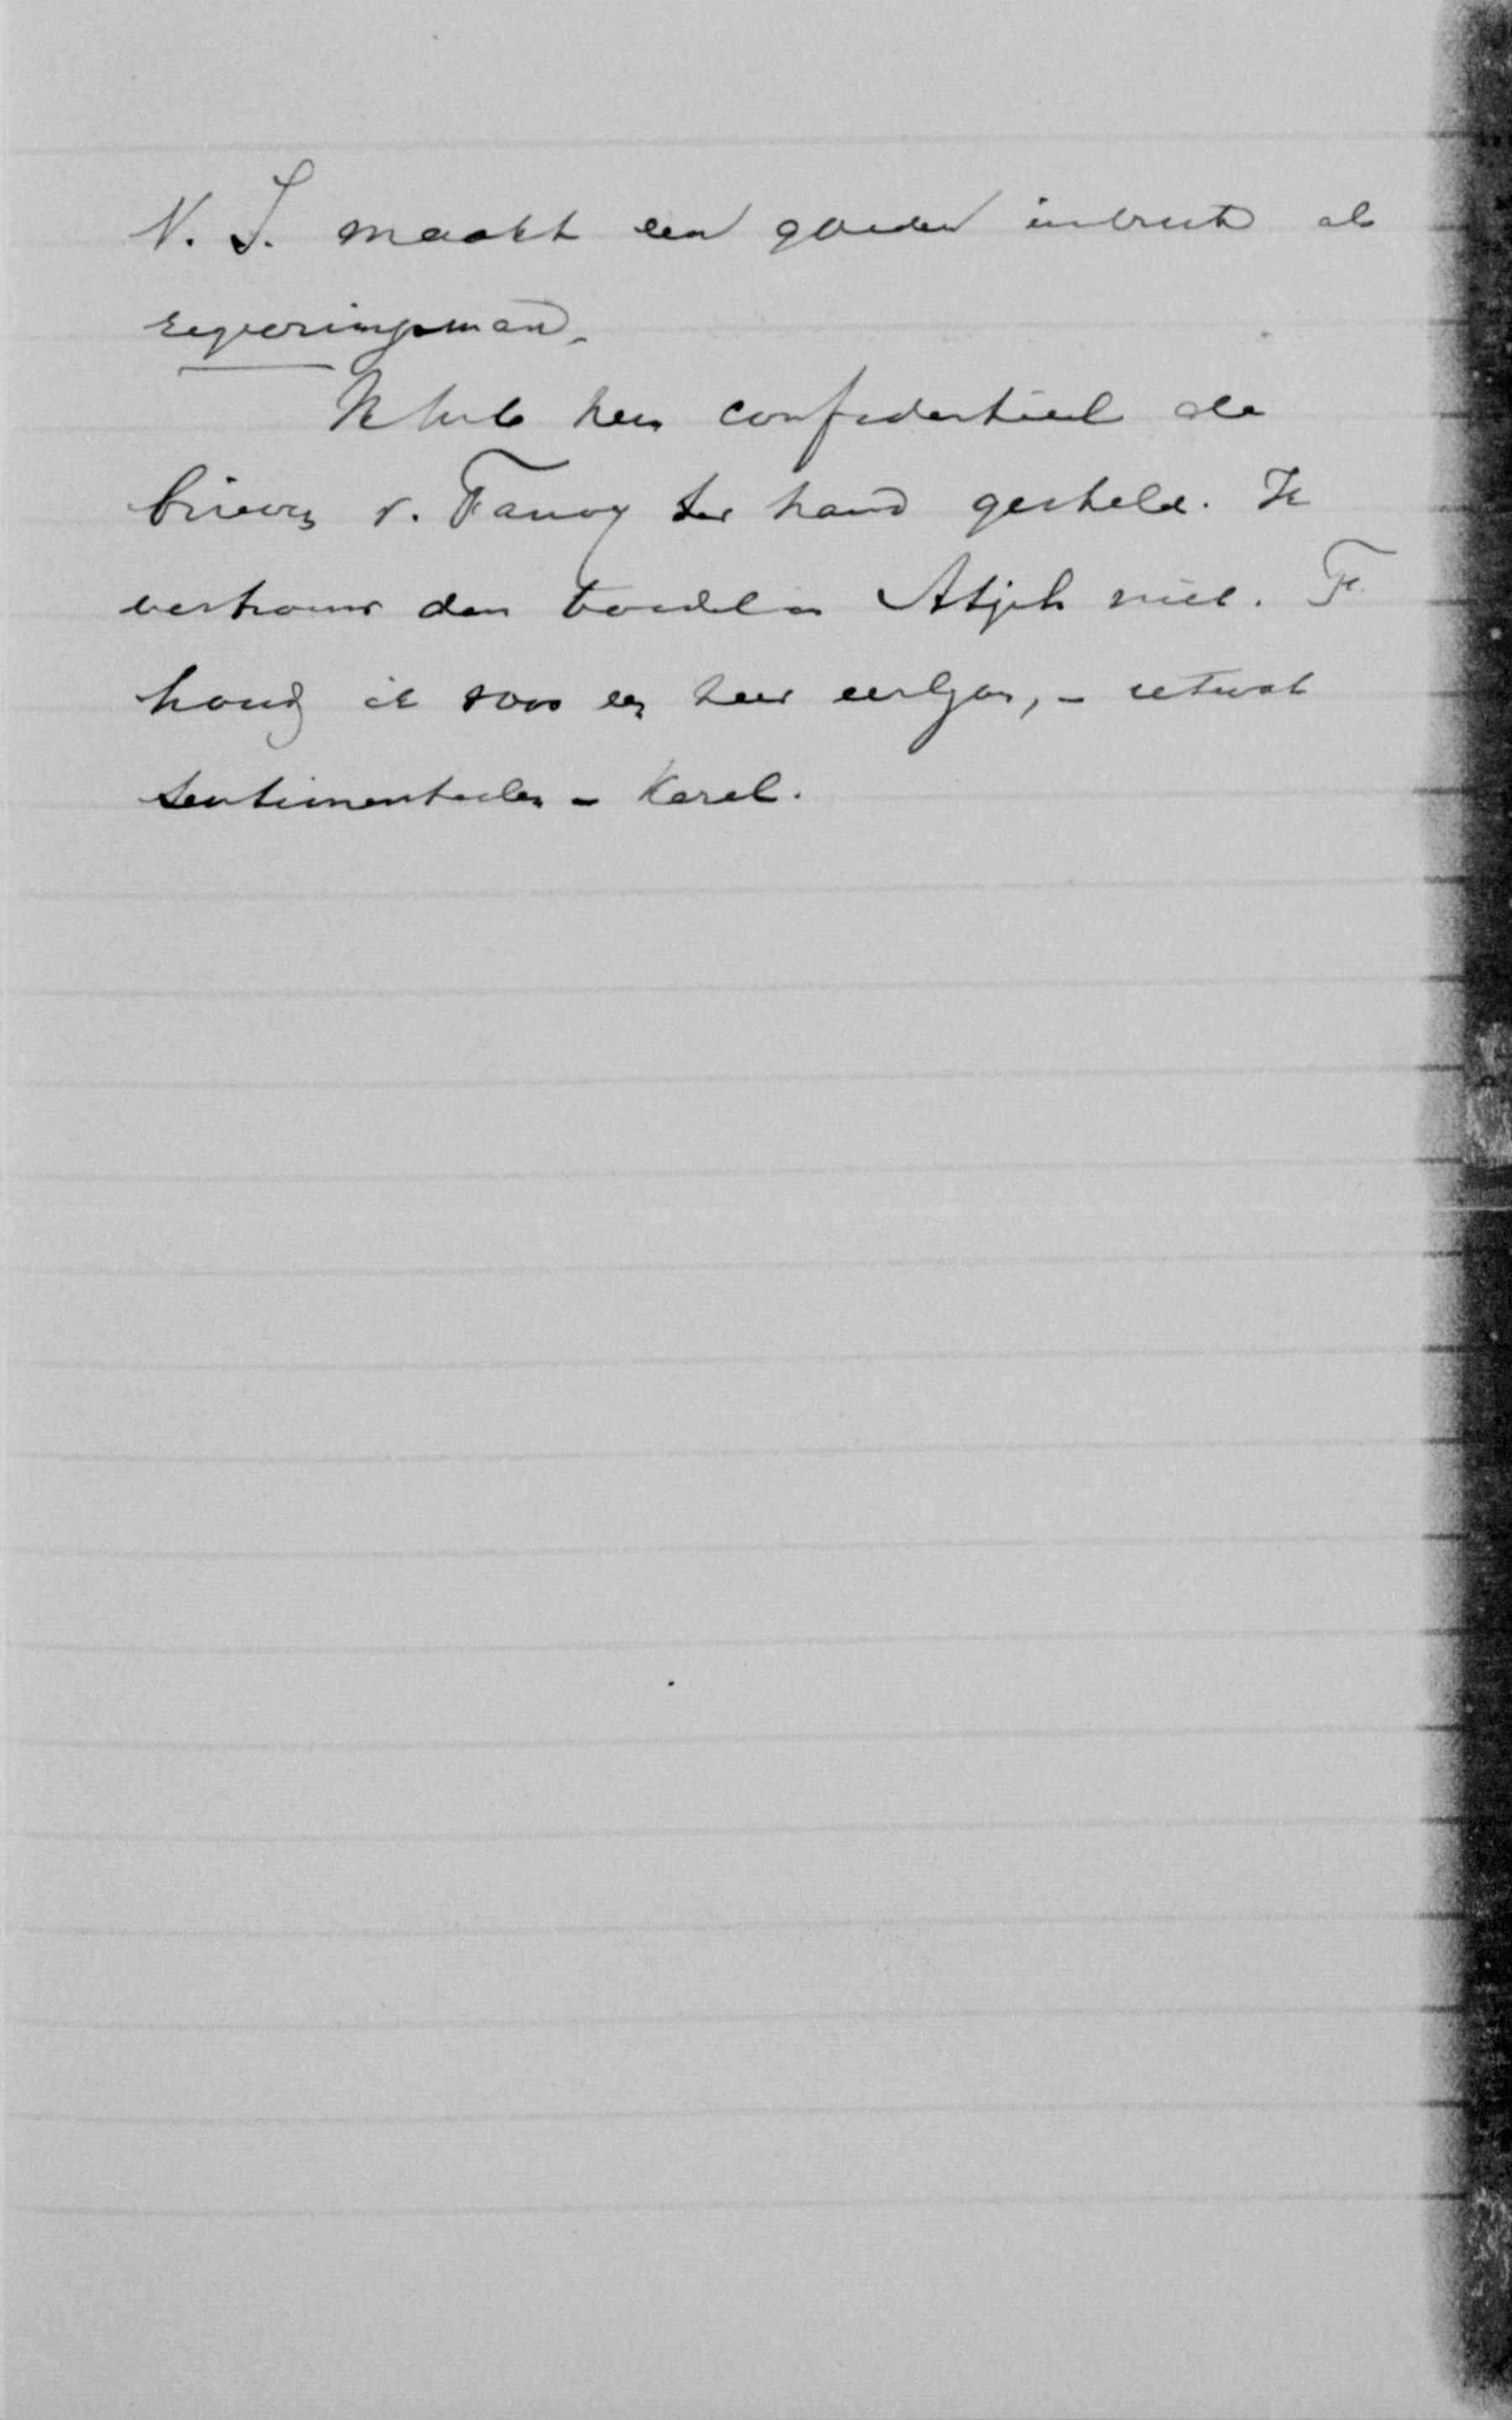 N. S. maakt een goeden indruk als
regeeringsman.
Ik heb hem confidentieel de
brieven v. Fanoy ter hand gesteld. Ik
vertrouw den boedel in Atjeh niet. F.
houd ik voor een zeer eerlijken, – ietwat
sentimenteelen – kerel.